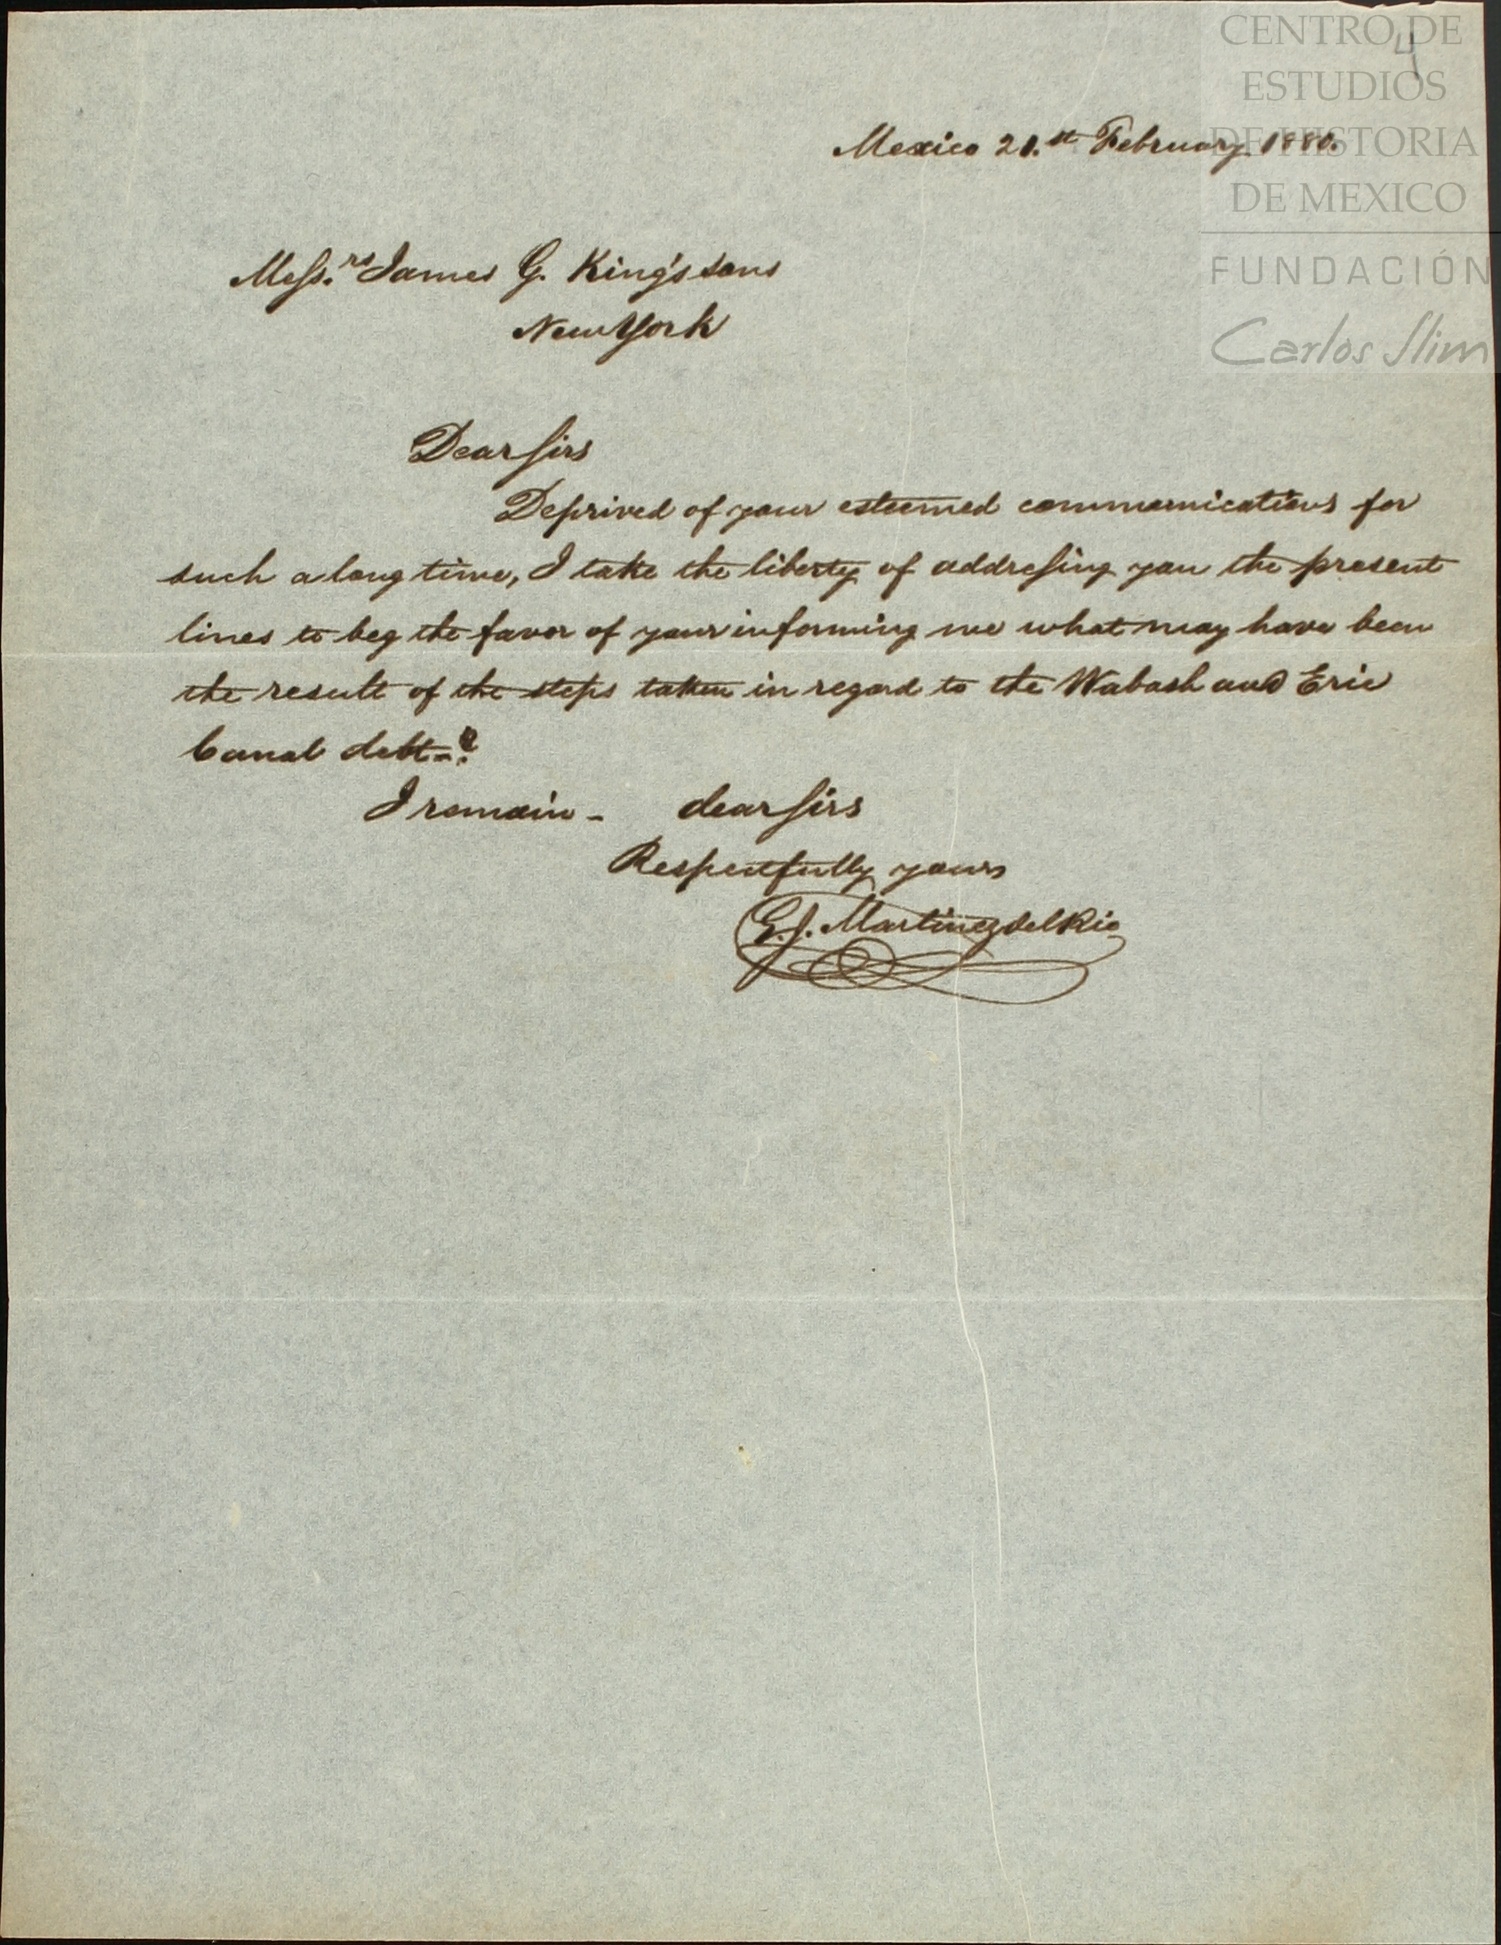 CENTRO DE
ESTUDIOS
DE HISTORIA
DE MEXICO
FUNDACIÓN
Carlos Slim
4
Mexico 21.st February 1880.
Mess.rs James G. King's sons
New York
Dear Sirs
Deprived of your esteemed communications for
such a long time, I take the liberty of addressing you the present
lines to beg the favor of your informing me what may have been
the result of the steps taken in regard to the Wabash and Erie
Canal debt-?
I remain - dear Sirs
Respectfully yours
G. J. Martinez del Rio